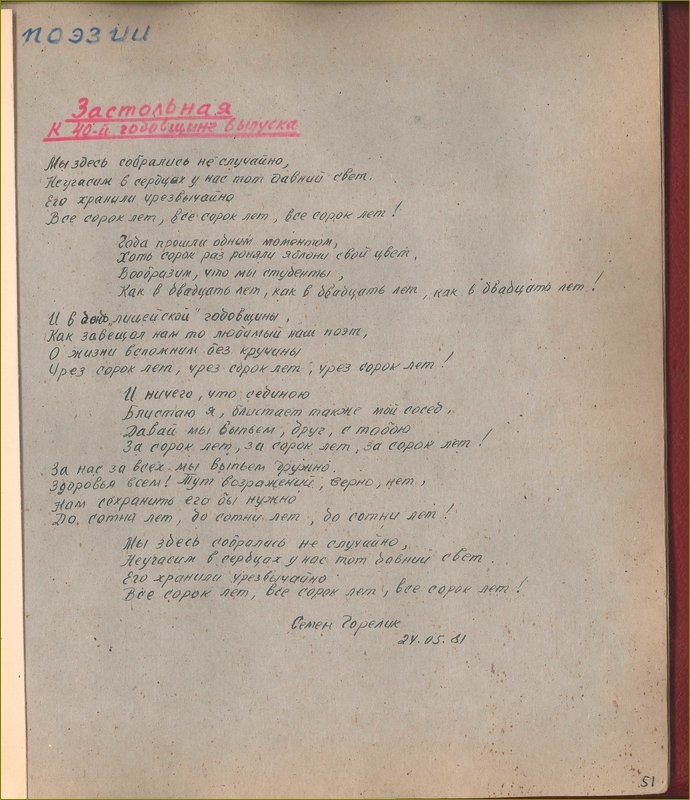 ПОЭЗИИ
Застольная
К 40-й годовщине выпуска
Мы здесь собрались не случайно,
Неугасим в сердцах у нас тот давний свет.
Его хранили чрезвычайно
Все сорок лет, все сорок лет, все сорок лет!
Года прошли одним моментом,
Хоть сорок раз роняли яблони свой цвет,
Вообразим, что мы студенты,
Как в двадцать лет, как в двадцать лет, как в двадцать лет!
И в день "лицейской" годовщины,
Как завещал нам то любимый наш поэт,
О жизни вспомним без кручины
Чрез сорок лет, чрез сорок лет, чрез сорок лет!
И ничего, что сединою
Блистаю я, блистает также мой сосед,
Давай мы выпьем, друг, с тобою
За сорок лет, за сорок лет, за сорок лет!
За нас за всех мы выпьем дружно.
Здоровья всем! Тут возражений, верно, нет,
Нам сохранить его бы нужно
До сотни лет, до сотни лет, до сотни лет!
Мы здесь собрались не случайно,
Неугасим в сердцах у нас тот давний свет.
Его хранили чрезвычайно
Все сорок лет, все сорок лет, все сорок лет!
Семен Горелик
24.05.81
51